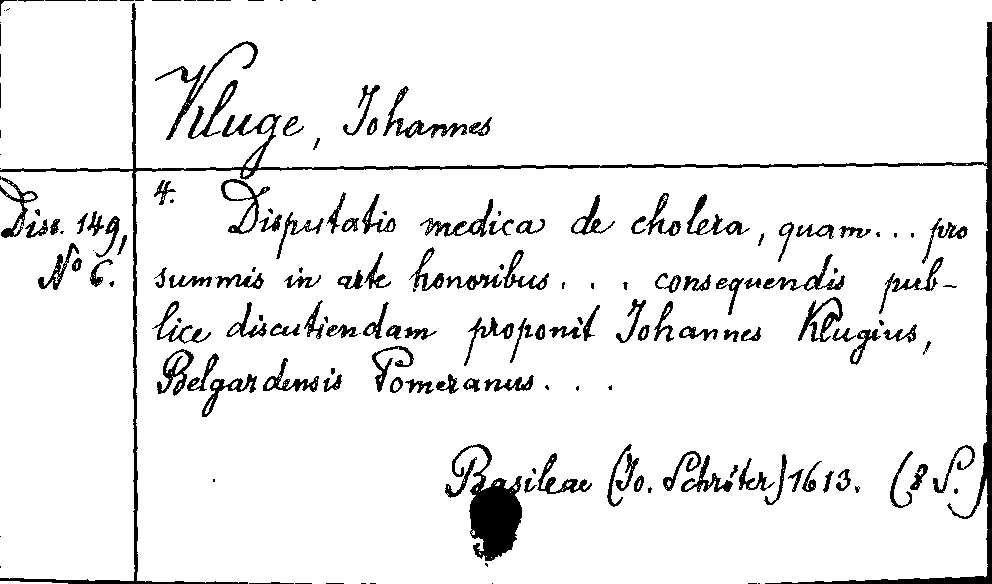 Kluge, Johannes
Diss. 149,
No 6.
4. Disputatio medica de cholera, quam... pro
summis in arte honoribus... consequendis pub-
lice discutiendam proponit Johannes Klugius,
Belgardensis Pomeranus...
Basileae (Jo. Schröter) 1613. (8 S.)